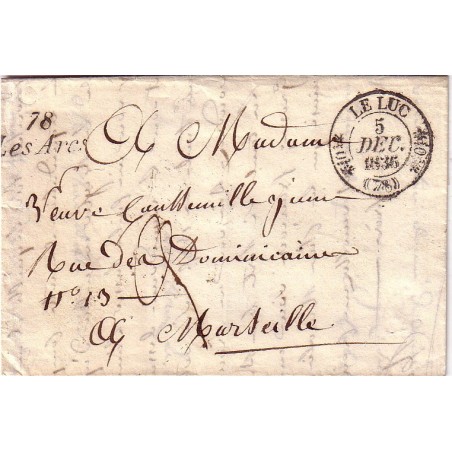 78
Les Arcs
LE LUC
5
DEC.
1836
(78)
A Madame
Veuve
Rue des Dominicaines
N° 13
A Marseille